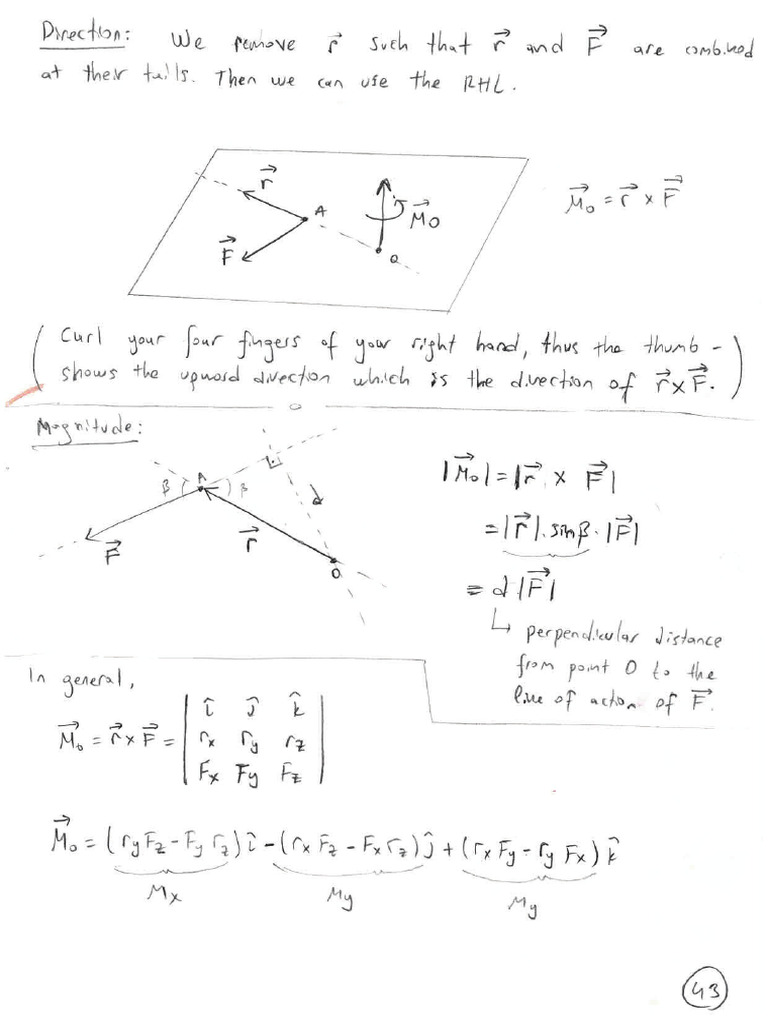 Direction: We remove r⃗ such that r⃗ and F⃗ are combined
at their tails. Then we can use the RHL.
r⃗
A
M⃗o
F⃗
O
M⃗o = r⃗ x F⃗
(Curl your four fingers of your right hand, thus the thumb -
shows the upward direction which is the direction of r⃗xF⃗.)
Magnitude:
β
A
β
d
F⃗
r⃗
O
|M⃗o| = |r⃗ x F⃗|
= |r⃗|.sinβ.|F⃗|
= d|F⃗|
↳ perpendicular distance
from point O to the
line of action of F⃗.
In general,
M⃗o = r⃗xF⃗ = | î ĵ k̂ |
| rx ry rz |
| Fx Fy Fz |
M⃗o = (ryFz - Fyrz)î - (rxFz - Fxrz)ĵ + (rxFy - ryFx)k̂
Mx My My
43